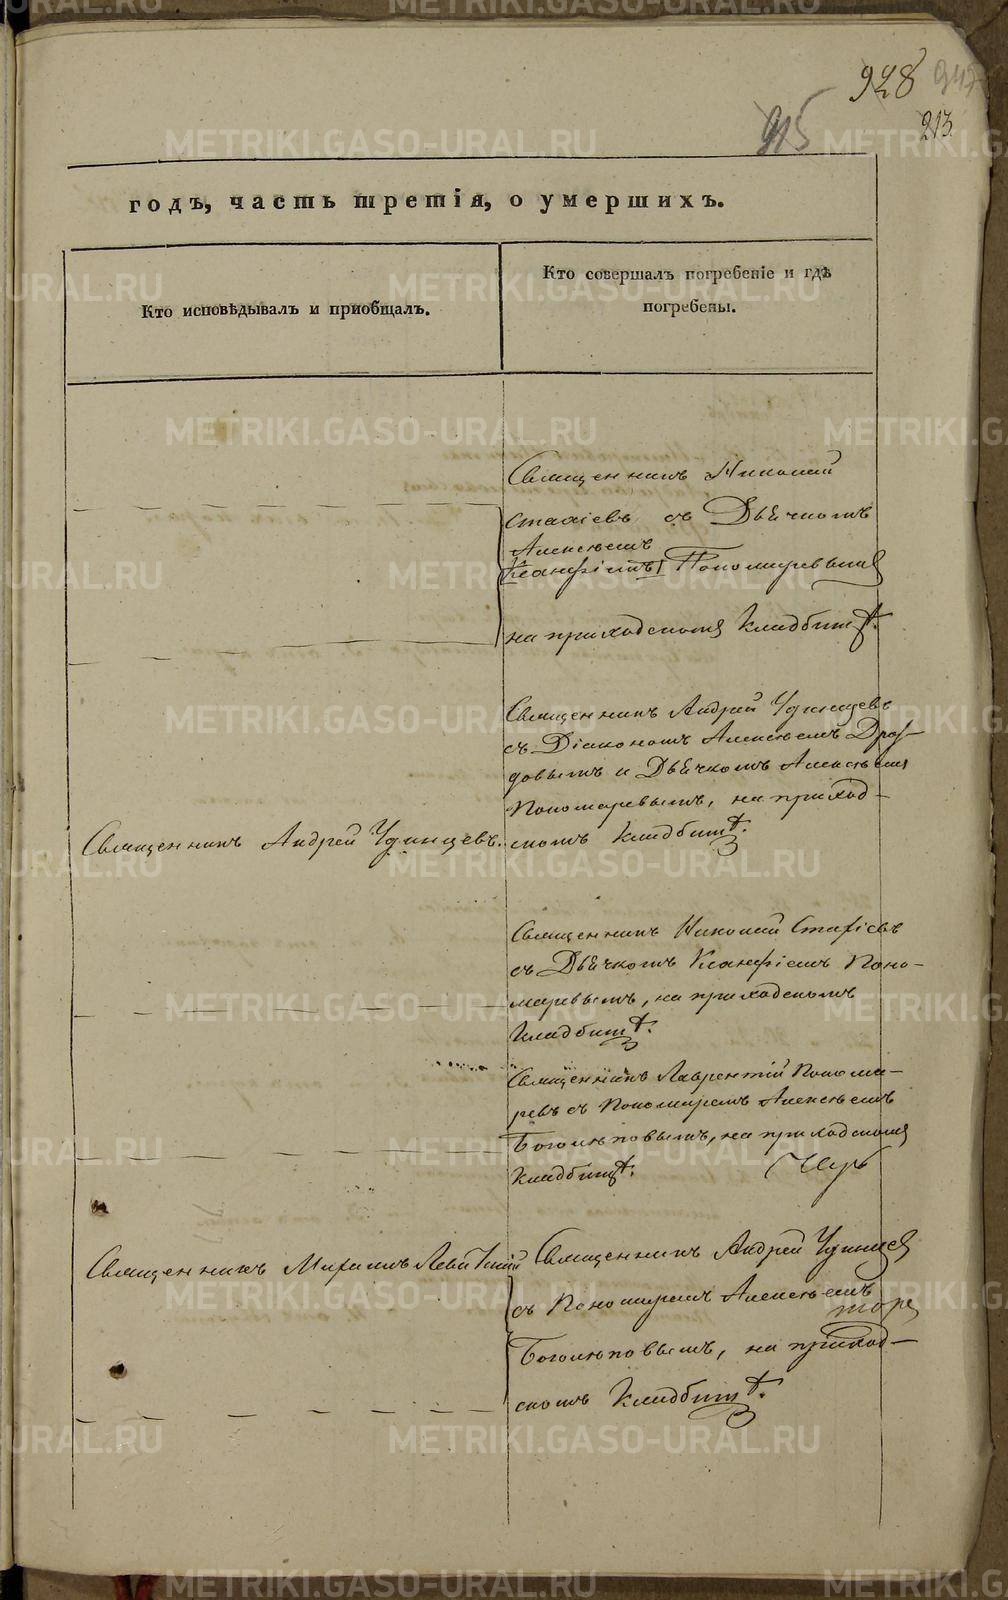 928
915
213
годъ, часть третія, о умершихъ.
Кто исповѣдывалъ и приобщалъ.
Кто совершалъ погребеніе и гдѣ
погребены.
Священникъ Николай
Стахіевъ съ Дьячкомъ
Алексѣемъ
Клавдіемъ Пономаревымъ
на приходскомъ кладбищѣ.
Священникъ Андрей Удинцевъ
съ Діакономъ Алексѣемъ Дроз-
довымъ и Дьячкомъ Алексѣемъ
Пономаревымъ, на приход-
скомъ кладбищѣ.
Священникъ Андрей Удинцевъ.
Священникъ Николай Стахіевъ
съ Дьячкомъ Поно-
маревымъ, на приходскомъ
кладбищѣ.
Священникъ Лаврентій Понома-
ревъ съ Пономаремъ Алексѣемъ
Боголюповымъ, на приходскомъ
кладбищѣ.
Священникъ Михаилъ Левитскій
Священникъ Андрей Удинцевъ
съ Пономаремъ Алексѣемъ
Боголюповымъ, на приход-
скомъ кладбищѣ.
METRIKI.GASO-URAL.RU